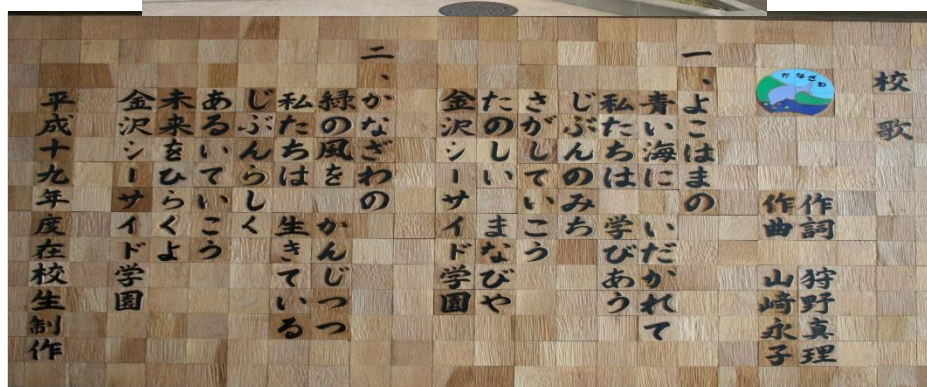 校歌
かなざわ
作詞 狩野真理
作曲 山崎永子
一、よこはまの
青い海に いだかれて
私たちは 学びあう
じぶんのみち
さがしていこう
たのしい まなびや
金沢シーサイド学園
二、かなざわの
緑の風を かんじつつ
私たちは 生きている
じぶんらしく
あるいていこう
未来をひらくよ
金沢シーサイド学園
平成十九年度在校生制作